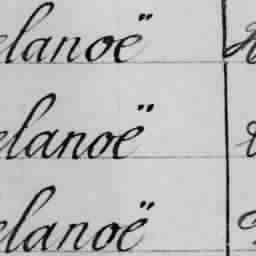 elanoë
elanoë
elanoë